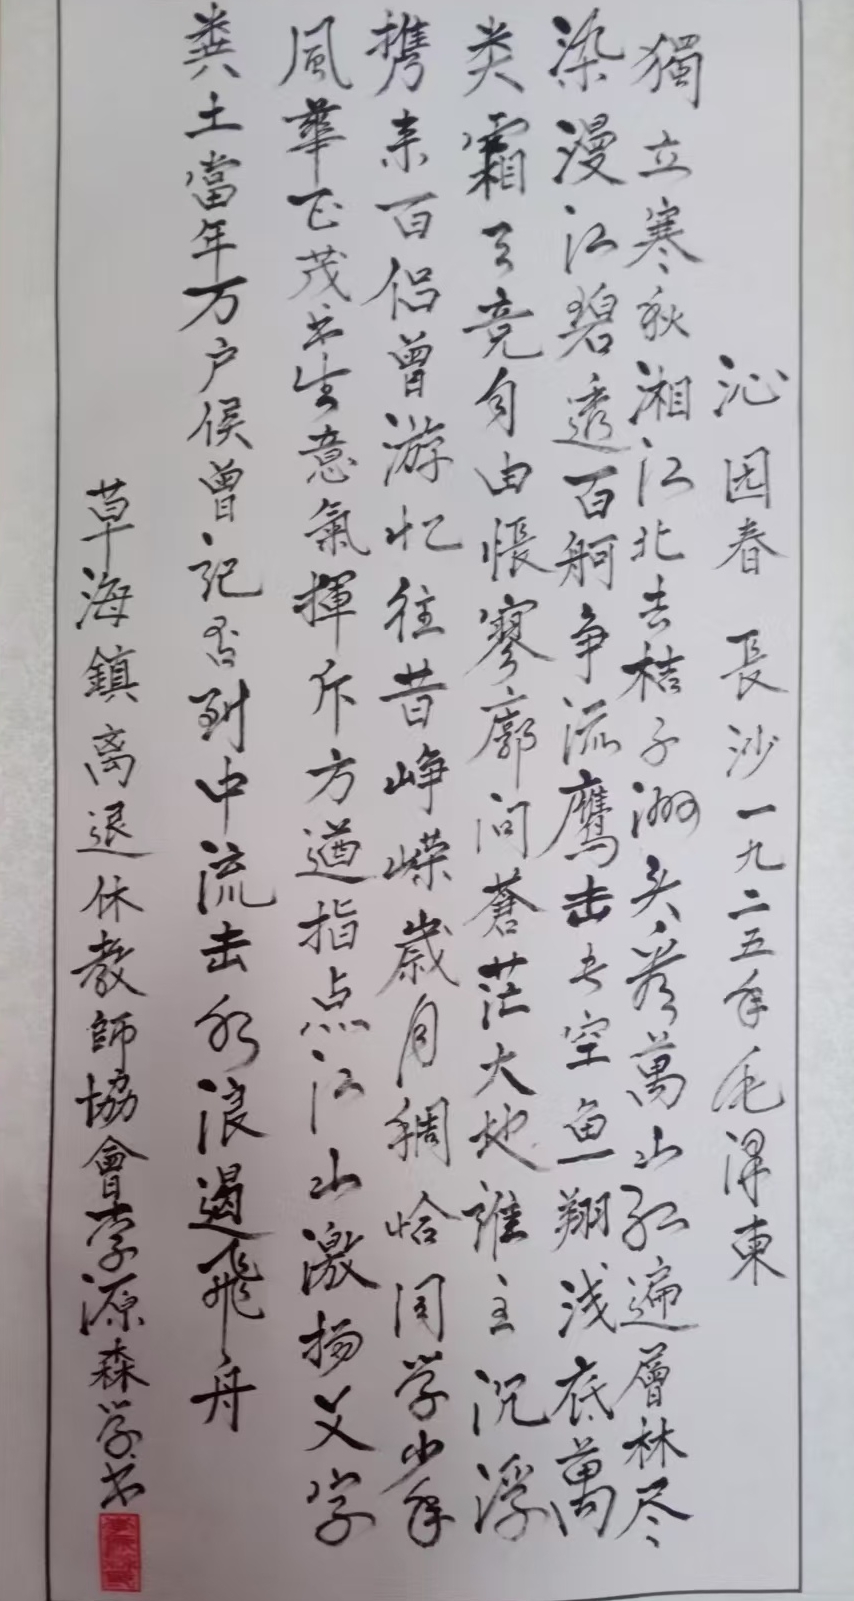 沁园春 長沙一九二五年毛澤東
獨立寒秋湘江北去桔子洲头看萬山红遍層林尽
染漫江碧透百舸争流鹰击长空鱼翔浅底萬
类霜天竞自由悵寥廓问蒼茫大地谁主沉浮
携来百侣曾游忆往昔峥嵘歲月稠恰同学少年
風華正茂书生意氣揮斥方遒指点江山激扬文字
粪土當年万户侯曾记否到中流击水浪遏飛舟
草海鎮离退休教師協會李源森学书